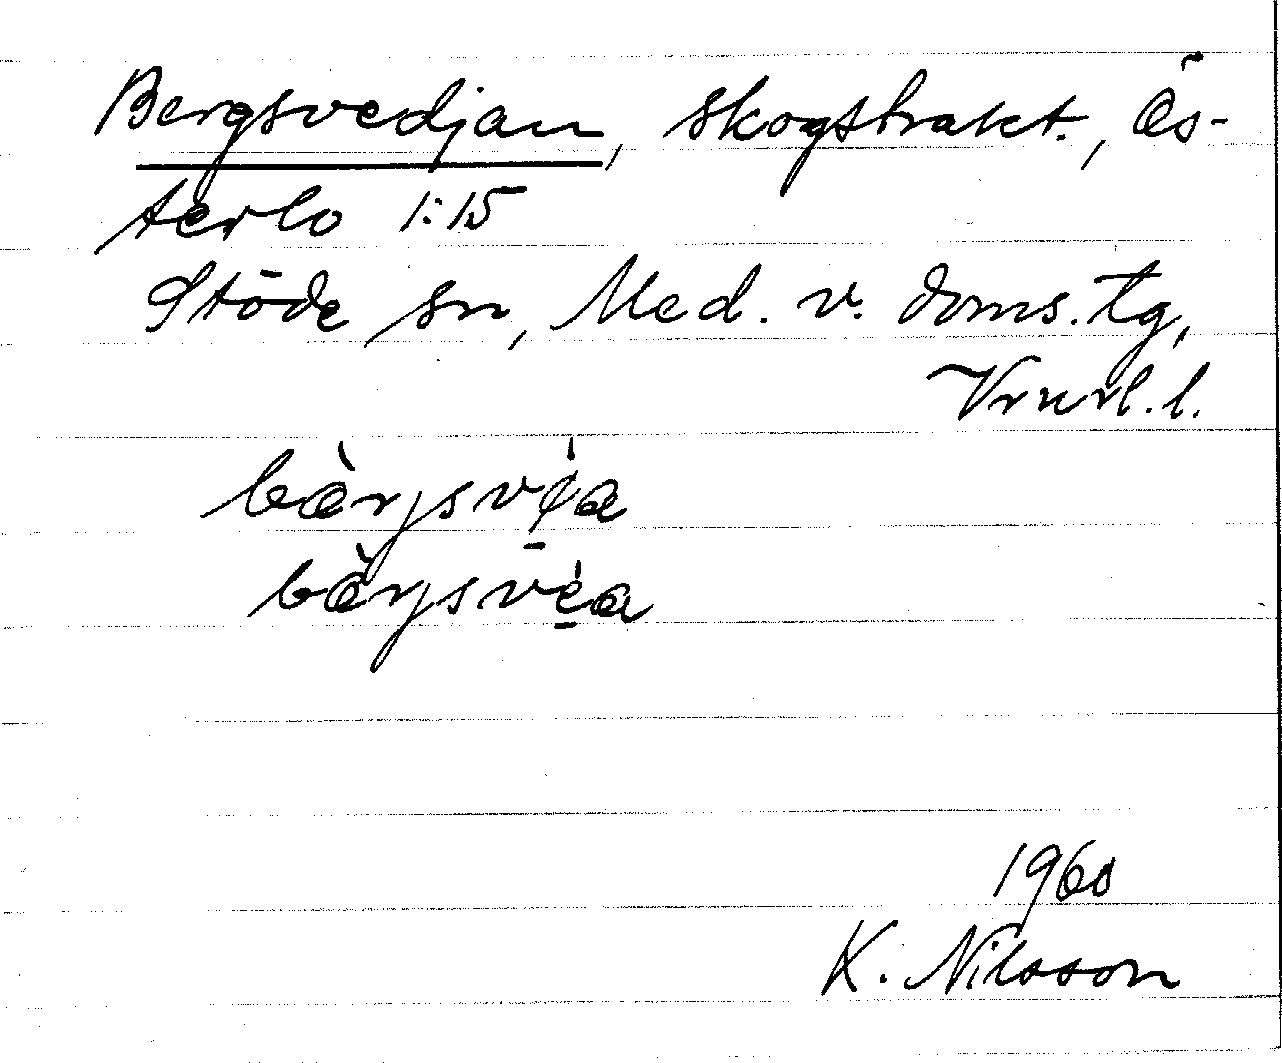 Bergsvedjan, skogstrakt., Ös-
terlo 1:15
Stöde sn, Med. v. doms. tg,
Vrnrl. l.
bàrjsvẹ́a
bàrjsvẹ́a
1960
K. Nilsson